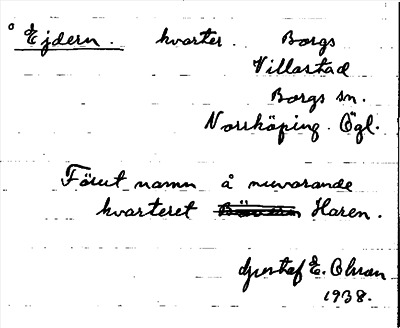 ° Ejdern. kvarter. Borgs
Villastad
Borgs sn.
Norrköping. Ögl.
Förut namn å nuvarande
kvarteret Bävern Haren.
Gustaf E. Olsson
1938.